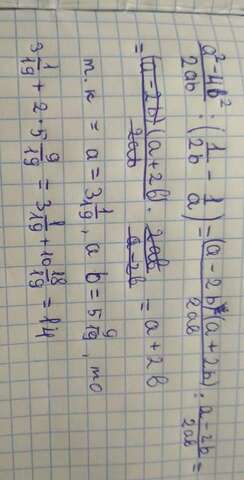 a²-4b²/2ab : (1/2b - 1/a) = (a-2b)(a+2b)/2ab : a-2b/2ab =
= (a-2b)(a+2b)/2ab · 2ab/a-2b = a+2b
т.к = a = 3 1/19, а b = 5 9/19, то
3 1/19 + 2 · 5 9/19 = 3 1/19 + 10 18/19 = 14